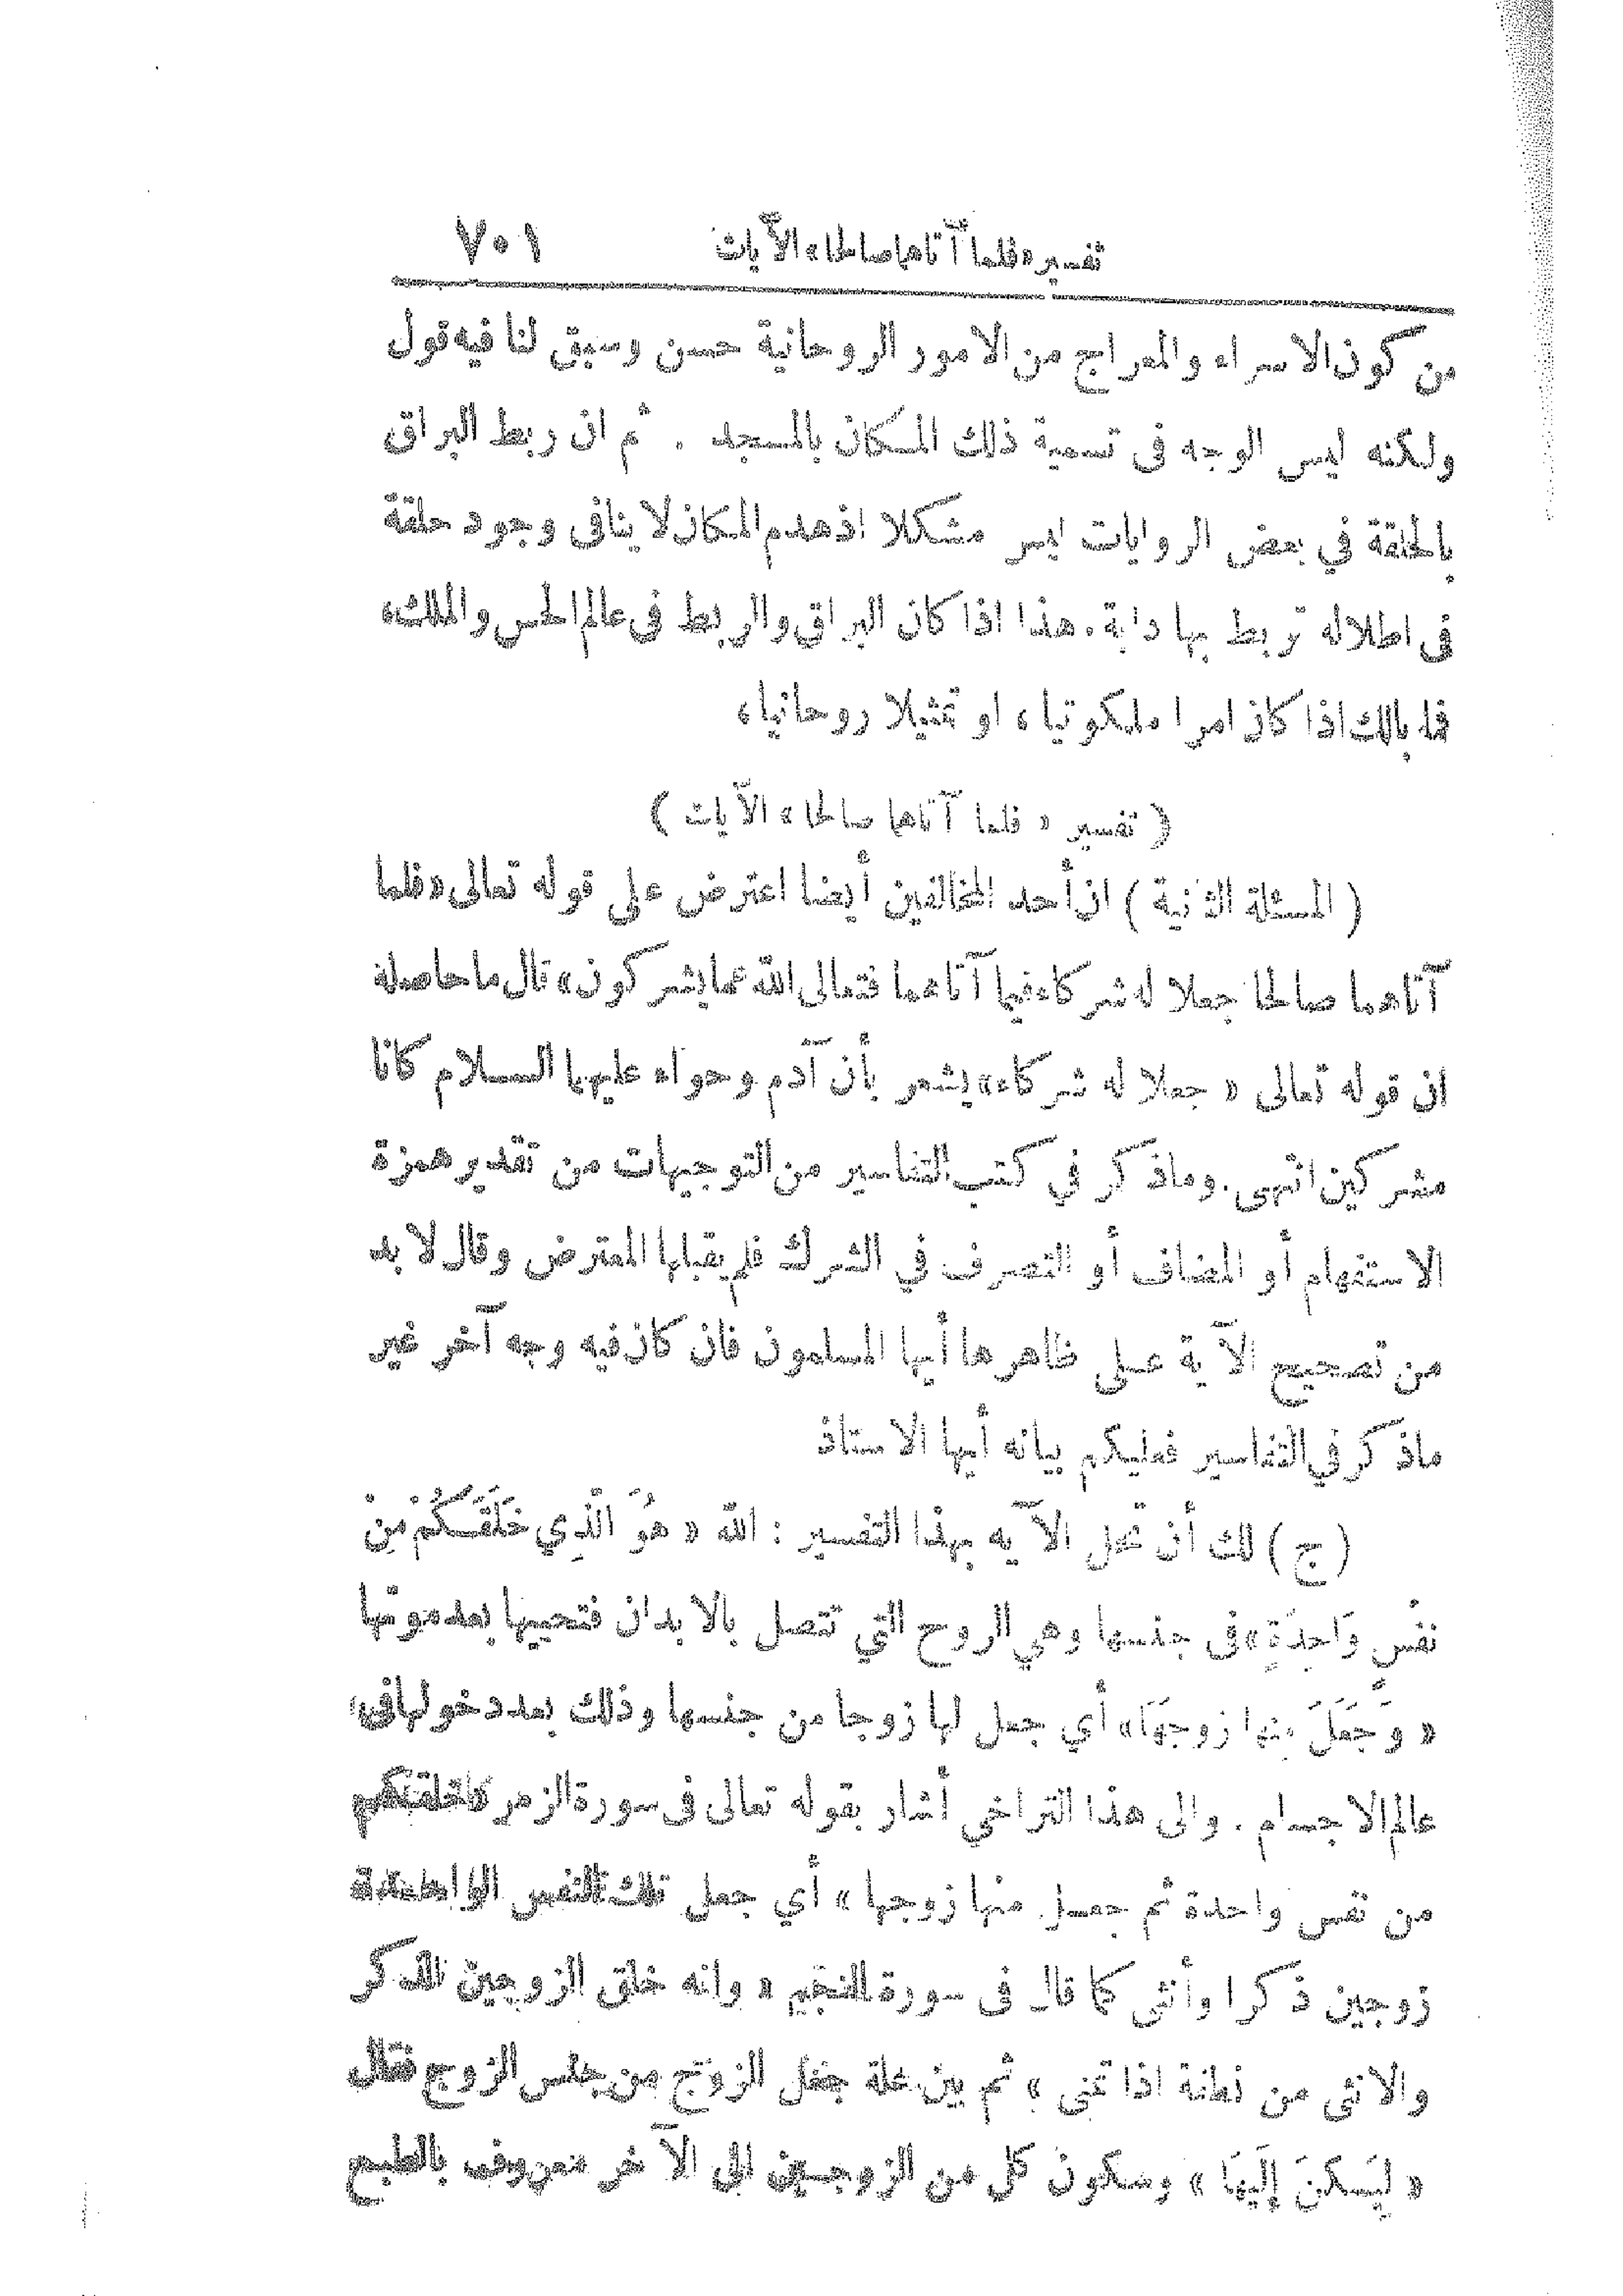 تفسير «فلما آتاهما صالحا» الآيات ٧٠١
من كون الاسراء والمعراج من الامور الروحانية حسن وسبق لنا فيه قول
ولكنه ليس الوجه فى تسمية ذلك المكان بالمسجد . ثم ان ربط البراق
بالحلقة في بعض الروايات ليس مشكلا اذ هدم المكان لا ينافى وجود حلقة
فى اطلاله تربط بها دابة. هذا اذا كان البراق والربط فى عالم الحس والملك،
فما بالك اذا كان امرا ملكوتيا، او تمثيلا روحانيا،
( تفسير « فلما آتاهما صالحا » الآيات )
( المسئلة الثانية ) ان أحد المخالفين أيضا اعترض على قوله تعالى «فلما
آتاهما صالحا جعلا له شركاء فيما آتاهما فتعالى الله عما يشركون» قال ما حاصله
ان قوله تعالى « جعلا له شركاء» يشعر بأن آدم وحواء عليهما السلام كانا
مشركين انتهى. وماذكر في كتب التفاسير من التوجيهات من تقدير همزة
الاستفهام أو المضاف أو التصرف في الشرك فلم يقبلها المعترض وقال لا بد
من تصحيح الآية على ظاهرها أيها المسلمون فان كان فيه وجه آخر غير
ماذكر في التفاسير فعليكم بيانه أيها الاستاذ
( ج ) لك أن تحمل الآيه بهذا التفسير : الله « هُوَ الَّذِي خَلَقَكُمْ مِنْ
نفْسٍ وَاحِدَةٍ» فى جنسها وهي الروح التي تتصل بالابدان فتحييها بعد موتها
« وَجَعَلَ منها زوجَهَا» أي جعل لها زوجا من جنسها وذلك بعد دخولها فى
عالم الاجسام . والى هذا التراخي أشار بقوله تعالى فى سورة الزمر «خلقكم
من نفس واحدة ثم جعل منها زوجها » أي جعل تلك النفس الواحدة
زوجين ذكرا وأنثى كما قال فى سورة النجم « وانه خلق الزوجين الذكر
والانثى من نطفة اذا تمنى » ثم بين علة جعل الزوج من جنس الزوج فقال
« لِيَسكنَ إِلَيهَا » وسكون كل من الزوجين الى الآخر معروف بالطبع